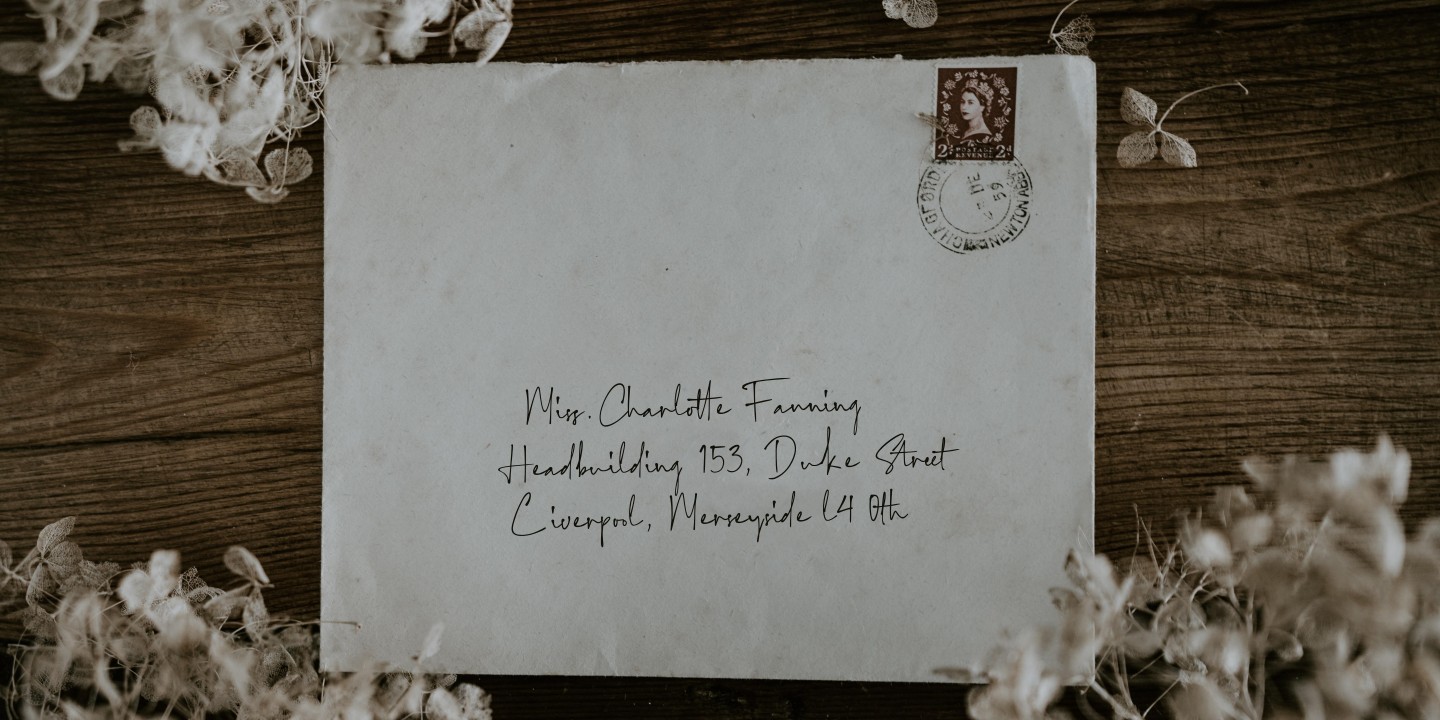 2½d POSTAGE REVENUE 2½d
NEWTON ABBOT
DE
59
Miss. Charlotte Fanning
Headbuilding 153, Duke Street
Civerpool, Merseyside l4 0th